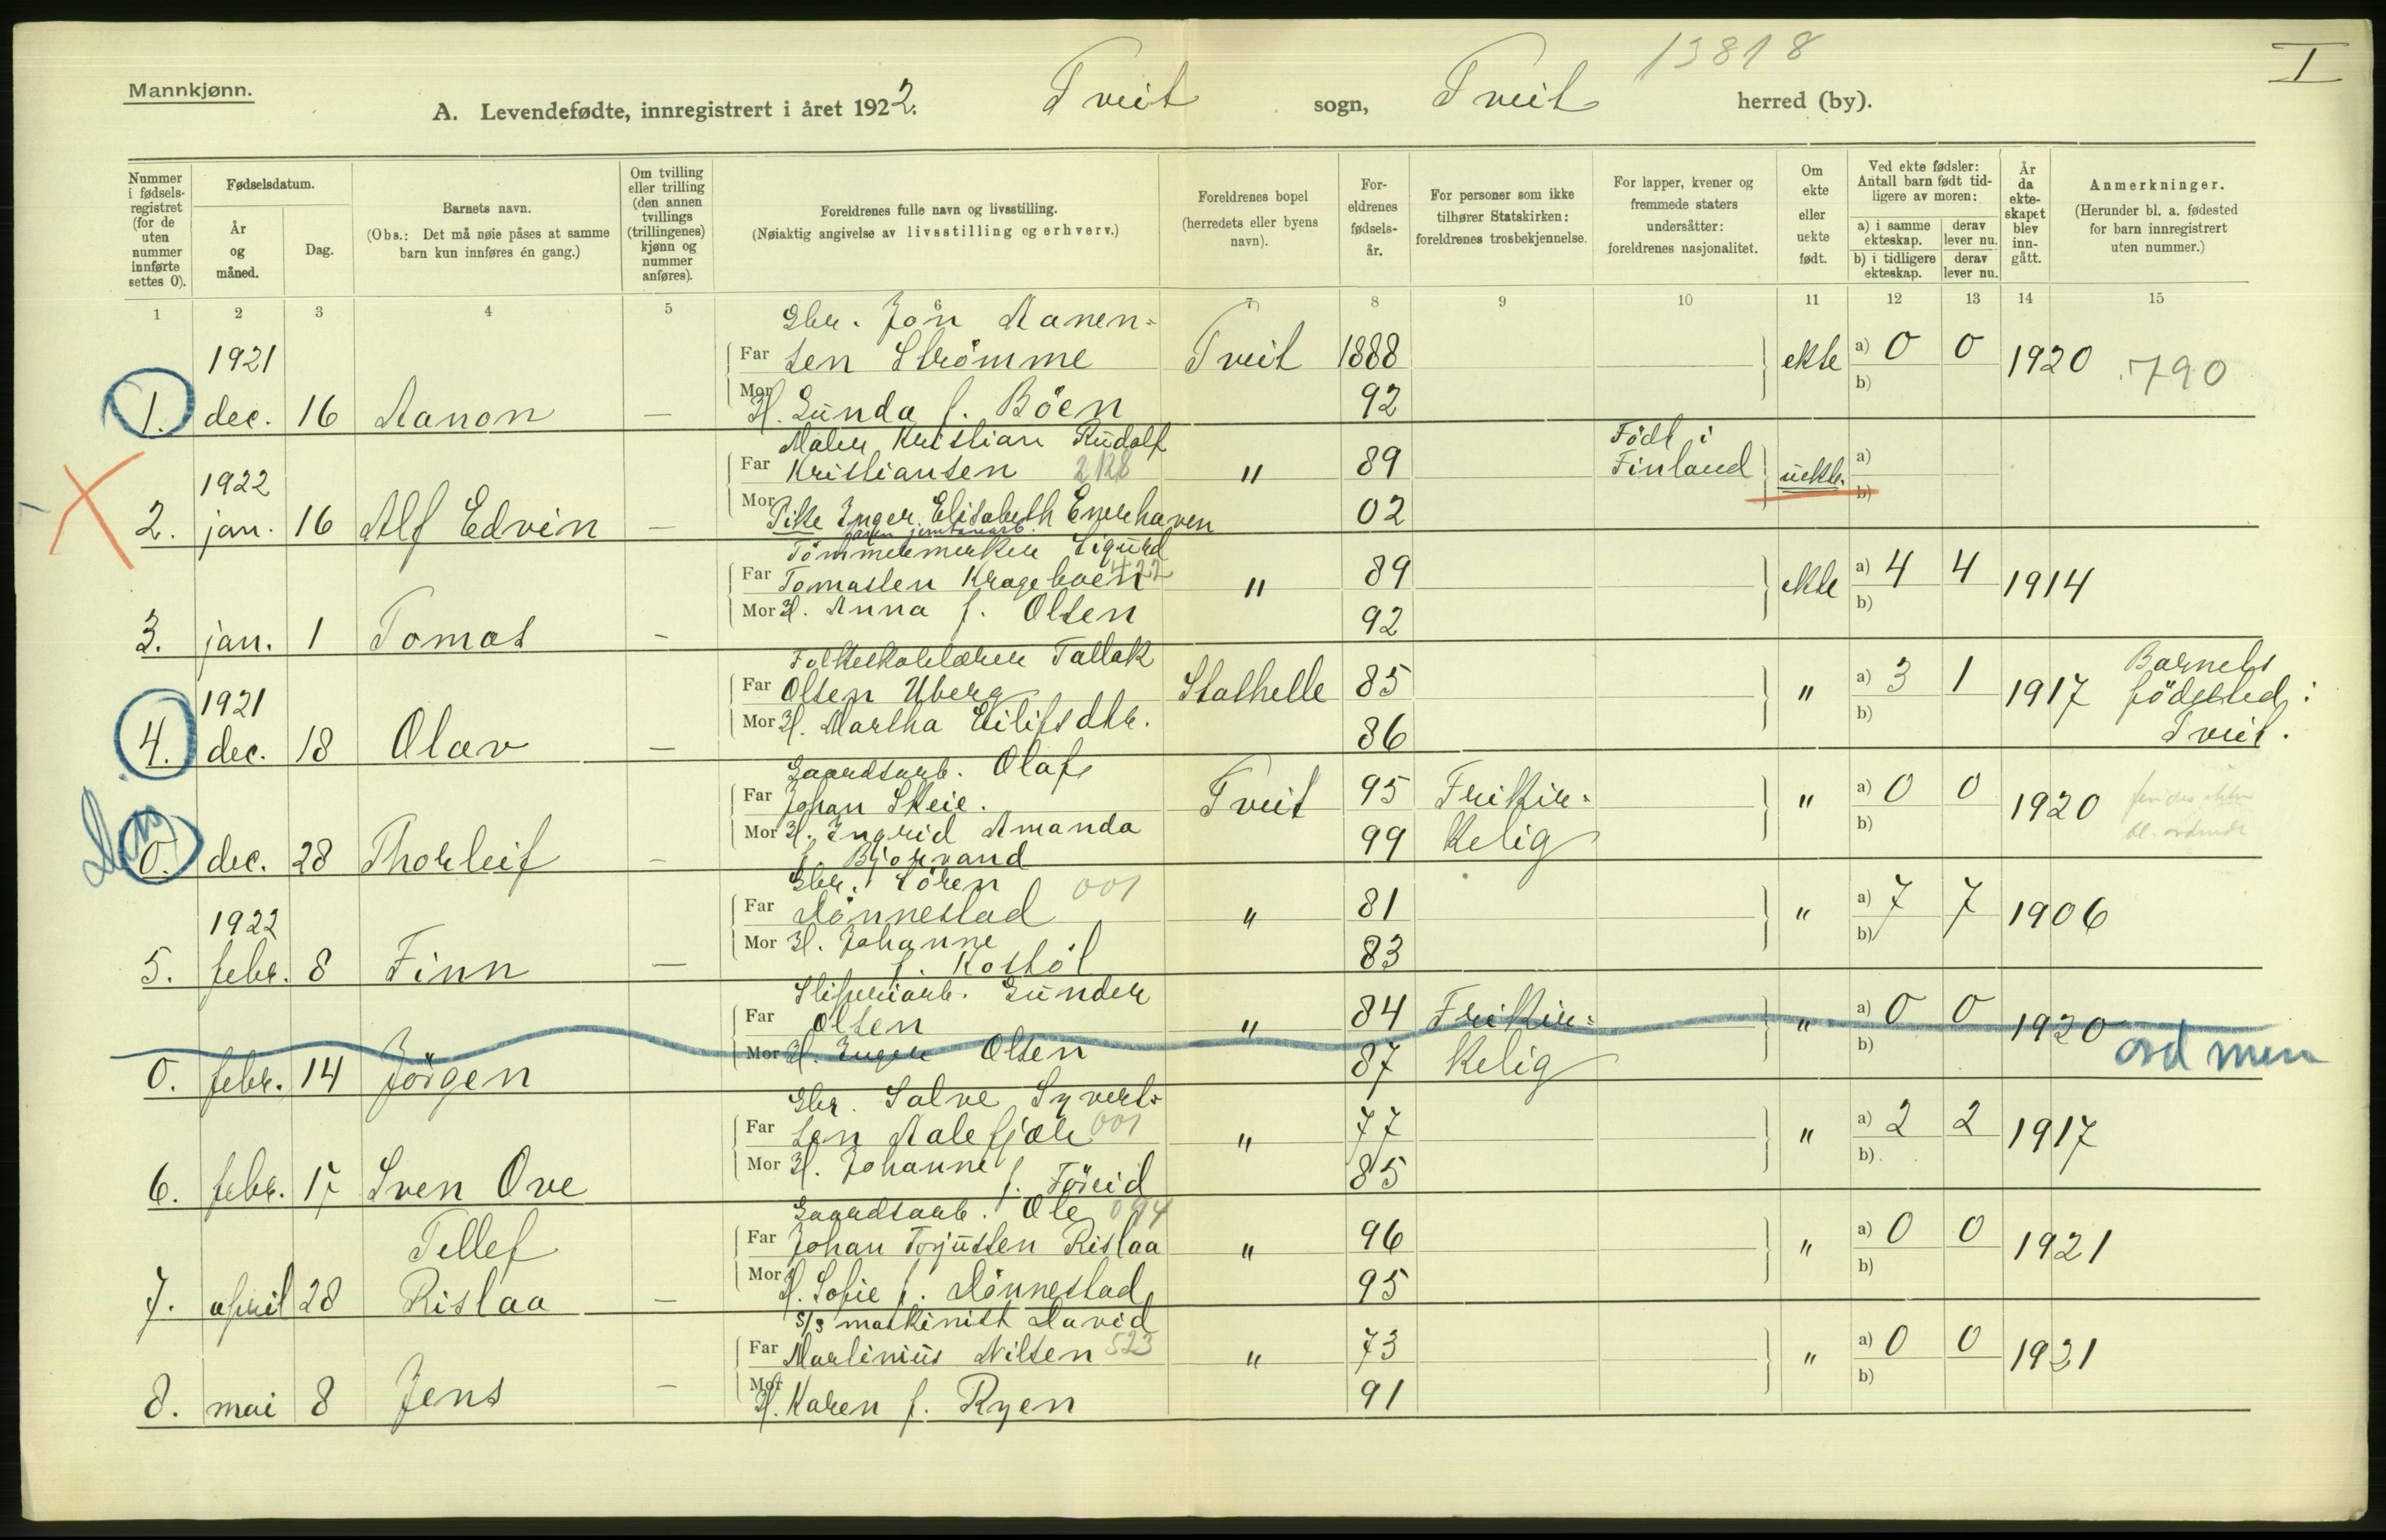 13818
I
Mannkjønn.
A. Levendefødte, innregistrert i året 1922. Tveit sogn, Tveit herred (by).
Nummer i fødsels-registret (for de uten nummer innførte settes 0).
Fødselsdatum.
År og måned.
Dag.
Barnets navn.
(Obs.: Det må nøie påses at samme barn kun innføres én gang.)
Om tvilling eller trilling (den annen tvillings (trillingenes) kjønn og nummer anføres).
Foreldrenes fulle navn og livsstilling.
(Nøiaktig angivelse av livsstilling og erhverv.)
Foreldrenes bopel
(herredets eller byens navn).
For-eldrenes fødsels-år.
For personer som ikke tilhører Statskirken: foreldrenes trosbekjennelse.
For lapper, kvener og fremmede staters undersåtter: foreldrenes nasjonalitet.
Om ekte eller uekte født.
Ved ekte fødsler: Antall barn født tid-ligere av moren:
a) i samme ekteskap.
derav lever nu.
b) i tidligere ekteskap.
derav lever nu.
År da ekte-skapet blev inn-gått.
Anmerkninger.
(Herunder bl. a. fødested for barn innregistrert uten nummer.)
1 2 3 4 5 6 7 8 9 10 11 12 13 14 15
Gbr. Jon Aanen-
1921 Far sen Strømme Tveit 1888 ekte a) 0 0 1920 790
1. dec. 16 Aanon — Mor H. Gunda f. Böen 92 b)
Maler Kristian Rudolf Födt i
1922 Far Kristiansen 2128 " 89 Finland uekte. a)
2. jan. 16 Alf Edvin — Mor Pike Inger Elisabeth Enerhaven 02 b)
Tömmermerker Sigurd
Far Tomassen Krageboen 422 " 89 ekte a) 4 4 1914
3. jan. 1 Tomas — Mor H. Anna f. Olsen 92 b)
Folkeskolelærer Tallak
1921 Far Olsen Uberg Stathelle 85 " a) 3 1 1917 Barnets födested: Tveit.
4. dec. 18 Olav — Mor H. Martha Eilifsdtr. 86 b)
Gaardsarb. Olaf
Far Johan Skeie. Tveit 95 Frikir- " a) 0 0 1920
0. dec. 28 Thorleif — Mor H. Ingrid Amanda 99 kelig b)
f. Bjorvand
Gbr. Sören 001
1922 Far Dönnestad " 81 " a) 7 7 1906
5. febr. 8 Finn — Mor H. Johanne 83 b)
f. Kostöl
Sliperiarb. Gunder
Far Olsen " 84 Frikir- " a) 0 0 1920
0. febr. 14 Jörgen Mor H. Inger Olsen 87 kelig b)
Gbr. Salve Syvert-
Far sen Aalefjær 001 " 77 " a) 2 2 1917
6. febr. 17 Sven Ove Mor H. Johanne 85 b)
Gaardsarb. Ole 094
Tellef Far Johan Torjussen Rislaa " 96 " a) 0 0 1921
7. april 28 Rislaa — Mor H. Sofie f. Dönnestad 95 b)
S/S maskinist David
Far Martinius Nilsen 523 " 73 " a) 0 0 1921
8. mai 8 Jens — Mor H. Karen f. Ryen 91 b)